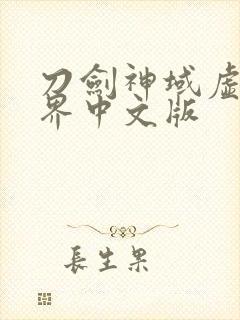 刀劍神域虛
界中文版
長生果